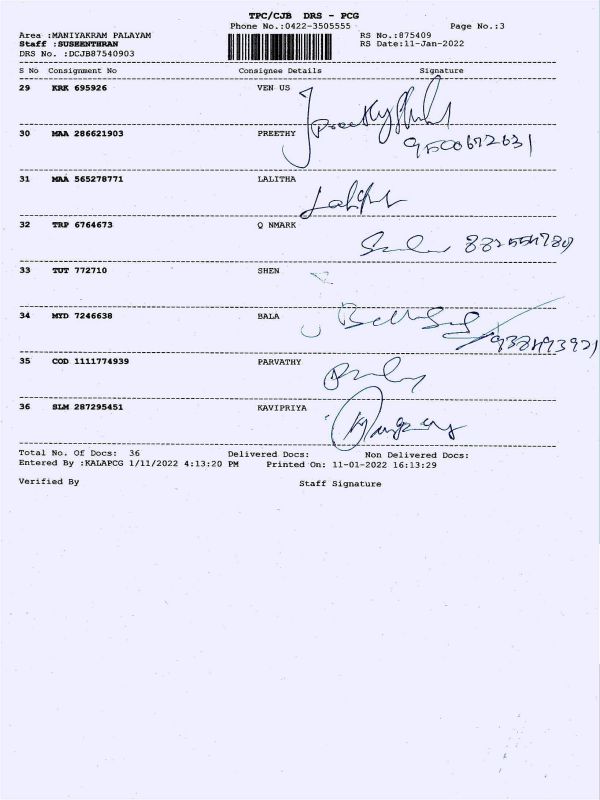 TPC/CJB DRS - PCG
Phone No.:0422-3505555 Page No.:3
Area :MANIYAKRAM PALAYAM RS No.:875409
Staff :SUSEENTHRAN RS Date:11-Jan-2022
DRS No. :DCJB87540903
S No Consignment No Consignee Details Signature
29 KRK 695926 VEN US
30 MAA 286621903 PREETHY Preethy
9500672631
31 MAA 565278771 LALITHA Lalitha
32 TRP 6764673 Q NMARK
33 TUT 772710 SHEN
34 MYD 7246638 BALA
35 COD 1111774939 PARVATHY
36 SLM 287295451 KAVIPRIYA
Total No. Of Docs: 36 Delivered Docs: Non Delivered Docs:
Entered By :KALAPCG 1/11/2022 4:13:20 PM Printed On: 11-01-2022 16:13:29
Verified By Staff Signature